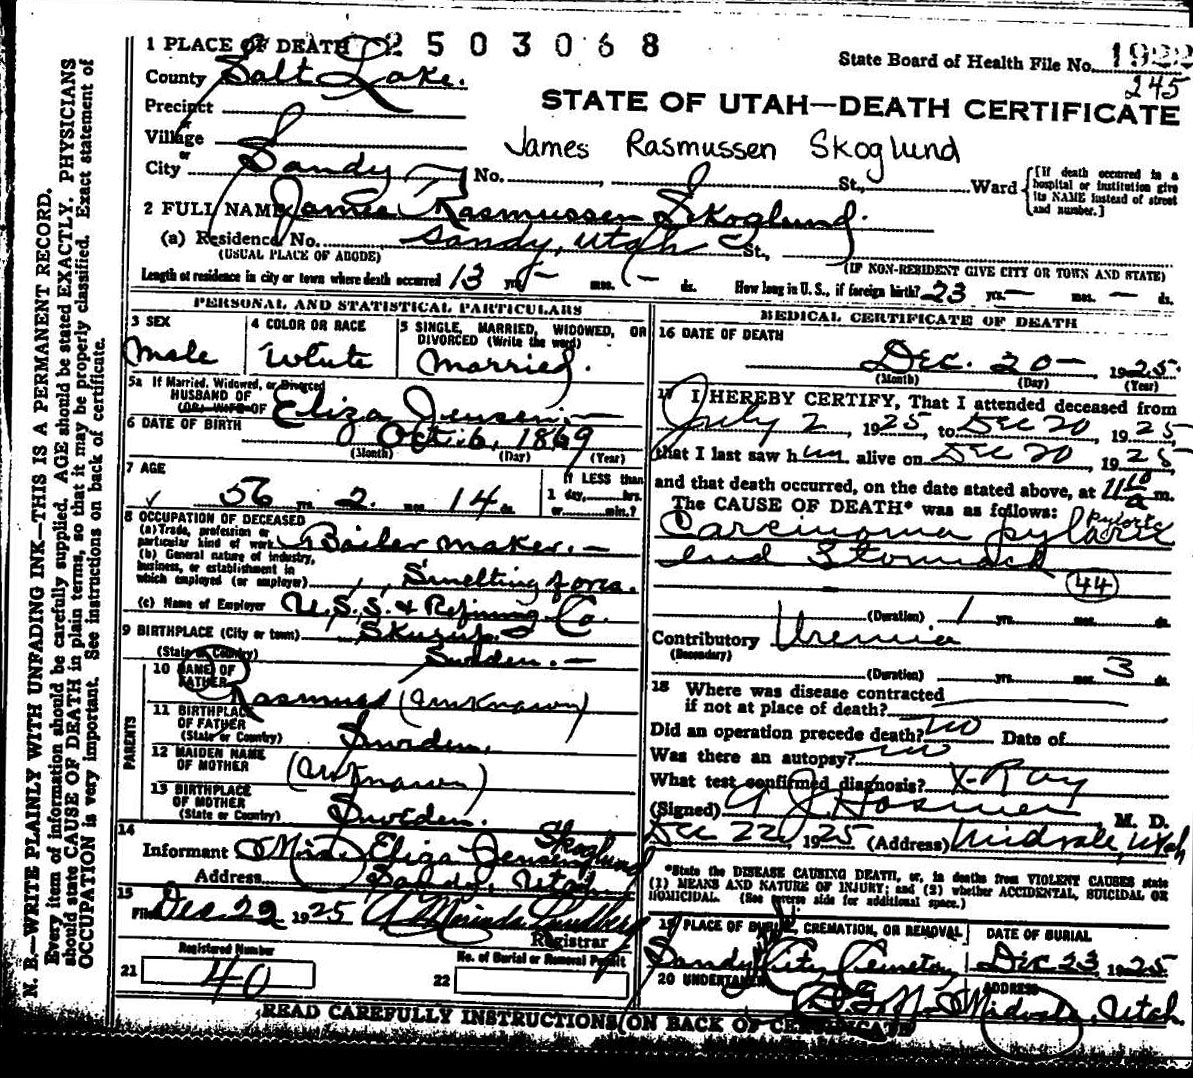 N. B.—WRITE PLAINLY WITH UNFADING INK—THIS IS A PERMANENT RECORD.
Every item of information should be carefully supplied. AGE should be stated EXACTLY. PHYSICIANS
should state CAUSE OF DEATH in plain terms, so that it may be properly classified. Exact statement of
OCCUPATION is very important. See instructions on back of certificate.
1 PLACE OF DEATH 2503068
State Board of Health File No. 1922
245
County Salt Lake.
STATE OF UTAH—DEATH CERTIFICATE
Precinct
Village
James Rasmussen Skoglund
or
City Sandy No. St., Ward
[If death occurred in a hospital or institution give its NAME instead of street and number.]
2 FULL NAME James Rasmussen Skoglund.
(a) Residence No. Sandy, Utah St.,
(USUAL PLACE OF ABODE) (IF NON-RESIDENT GIVE CITY OR TOWN AND STATE)
Length of residence in city or town where death occurred 13 yrs. — mos. — ds. How long in U. S., if foreign birth? 23 yrs. — mos. — ds.
PERSONAL AND STATISTICAL PARTICULARS
3 SEX 4 COLOR OR RACE 5 SINGLE, MARRIED, WIDOWED, OR
DIVORCED (Write the word)
Male White Married.
5a If Married, Widowed, or Divorced
HUSBAND OF
(OR) WIFE OF Eliza Jensen. —
6 DATE OF BIRTH Oct. 6, 1869
(Month) (Day) (Year)
7 AGE If LESS than
56 yrs. 2 mos. 14 ds. 1 day, hrs.
or min.?
8 OCCUPATION OF DECEASED
(a) Trade, profession or
particular kind of work Boiler maker. —
(b) General nature of industry,
business, or establishment in
which employed (or employer) Smelting of ores.
(c) Name of Employer U. S. S. & Refining Co.
9 BIRTHPLACE (City or town) Skurup.
(State or Country) Sweden. —
PARENTS
10 NAME OF
FATHER Rasmus (Unknown)
11 BIRTHPLACE
OF FATHER
(State or Country) Sweden.
12 MAIDEN NAME
OF MOTHER (Unknown)
13 BIRTHPLACE
OF MOTHER
(State or Country) Sweden.
14
Informant Mrs. Eliza Jensen Skoglund
Address Sandy, Utah
15
Filed Dec 22 1925 Lundberg
Registrar
Registered Number No. of Burial or Removal Permit
21 40 22
MEDICAL CERTIFICATE OF DEATH
16 DATE OF DEATH
Dec. 20 — 1925.
(Month) (Day) (Year)
17 I HEREBY CERTIFY, That I attended deceased from
July 2, 1925, to Dec 20, 1925
that I last saw him alive on Dec 20, 1925
and that death occurred, on the date stated above, at 11 10 a m.
The CAUSE OF DEATH* was as follows:
Carcinoma pyloric pyloric
end Stomach
44
(Duration) 1 yrs. mos. ds.
Contributory Uremia
(Secondary)
(Duration) yrs. mos. 3 ds.
18 Where was disease contracted
if not at place of death?
Did an operation precede death? no Date of
Was there an autopsy? no
What test confirmed diagnosis? X-Ray
(Signed) Hosmer M. D.
Dec 22, 1925 (Address) Midvale, Utah
*State the DISEASE CAUSING DEATH, or, in deaths from VIOLENT CAUSES state
(1) MEANS AND NATURE OF INJURY; and (2) whether ACCIDENTAL, SUICIDAL OR
HOMICIDAL. (See reverse side for additional space.)
19 PLACE OF BURIAL, CREMATION, OR REMOVAL DATE OF BURIAL
Sandy City Cemetery Dec 23 1925
20 UNDERTAKER ADDRESS
Midvale, Utah.
READ CAREFULLY INSTRUCTIONS ON BACK OF CERTIFICATE